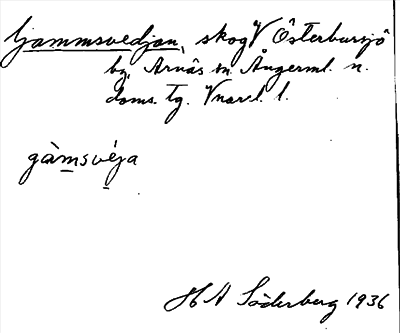 Gammsvedjan, skog V Österbursjö
by, Arnäs sn. Ångerml. n.
doms. tg. Vnorl. l.
gàmsvéja
H A Söderberg 1936